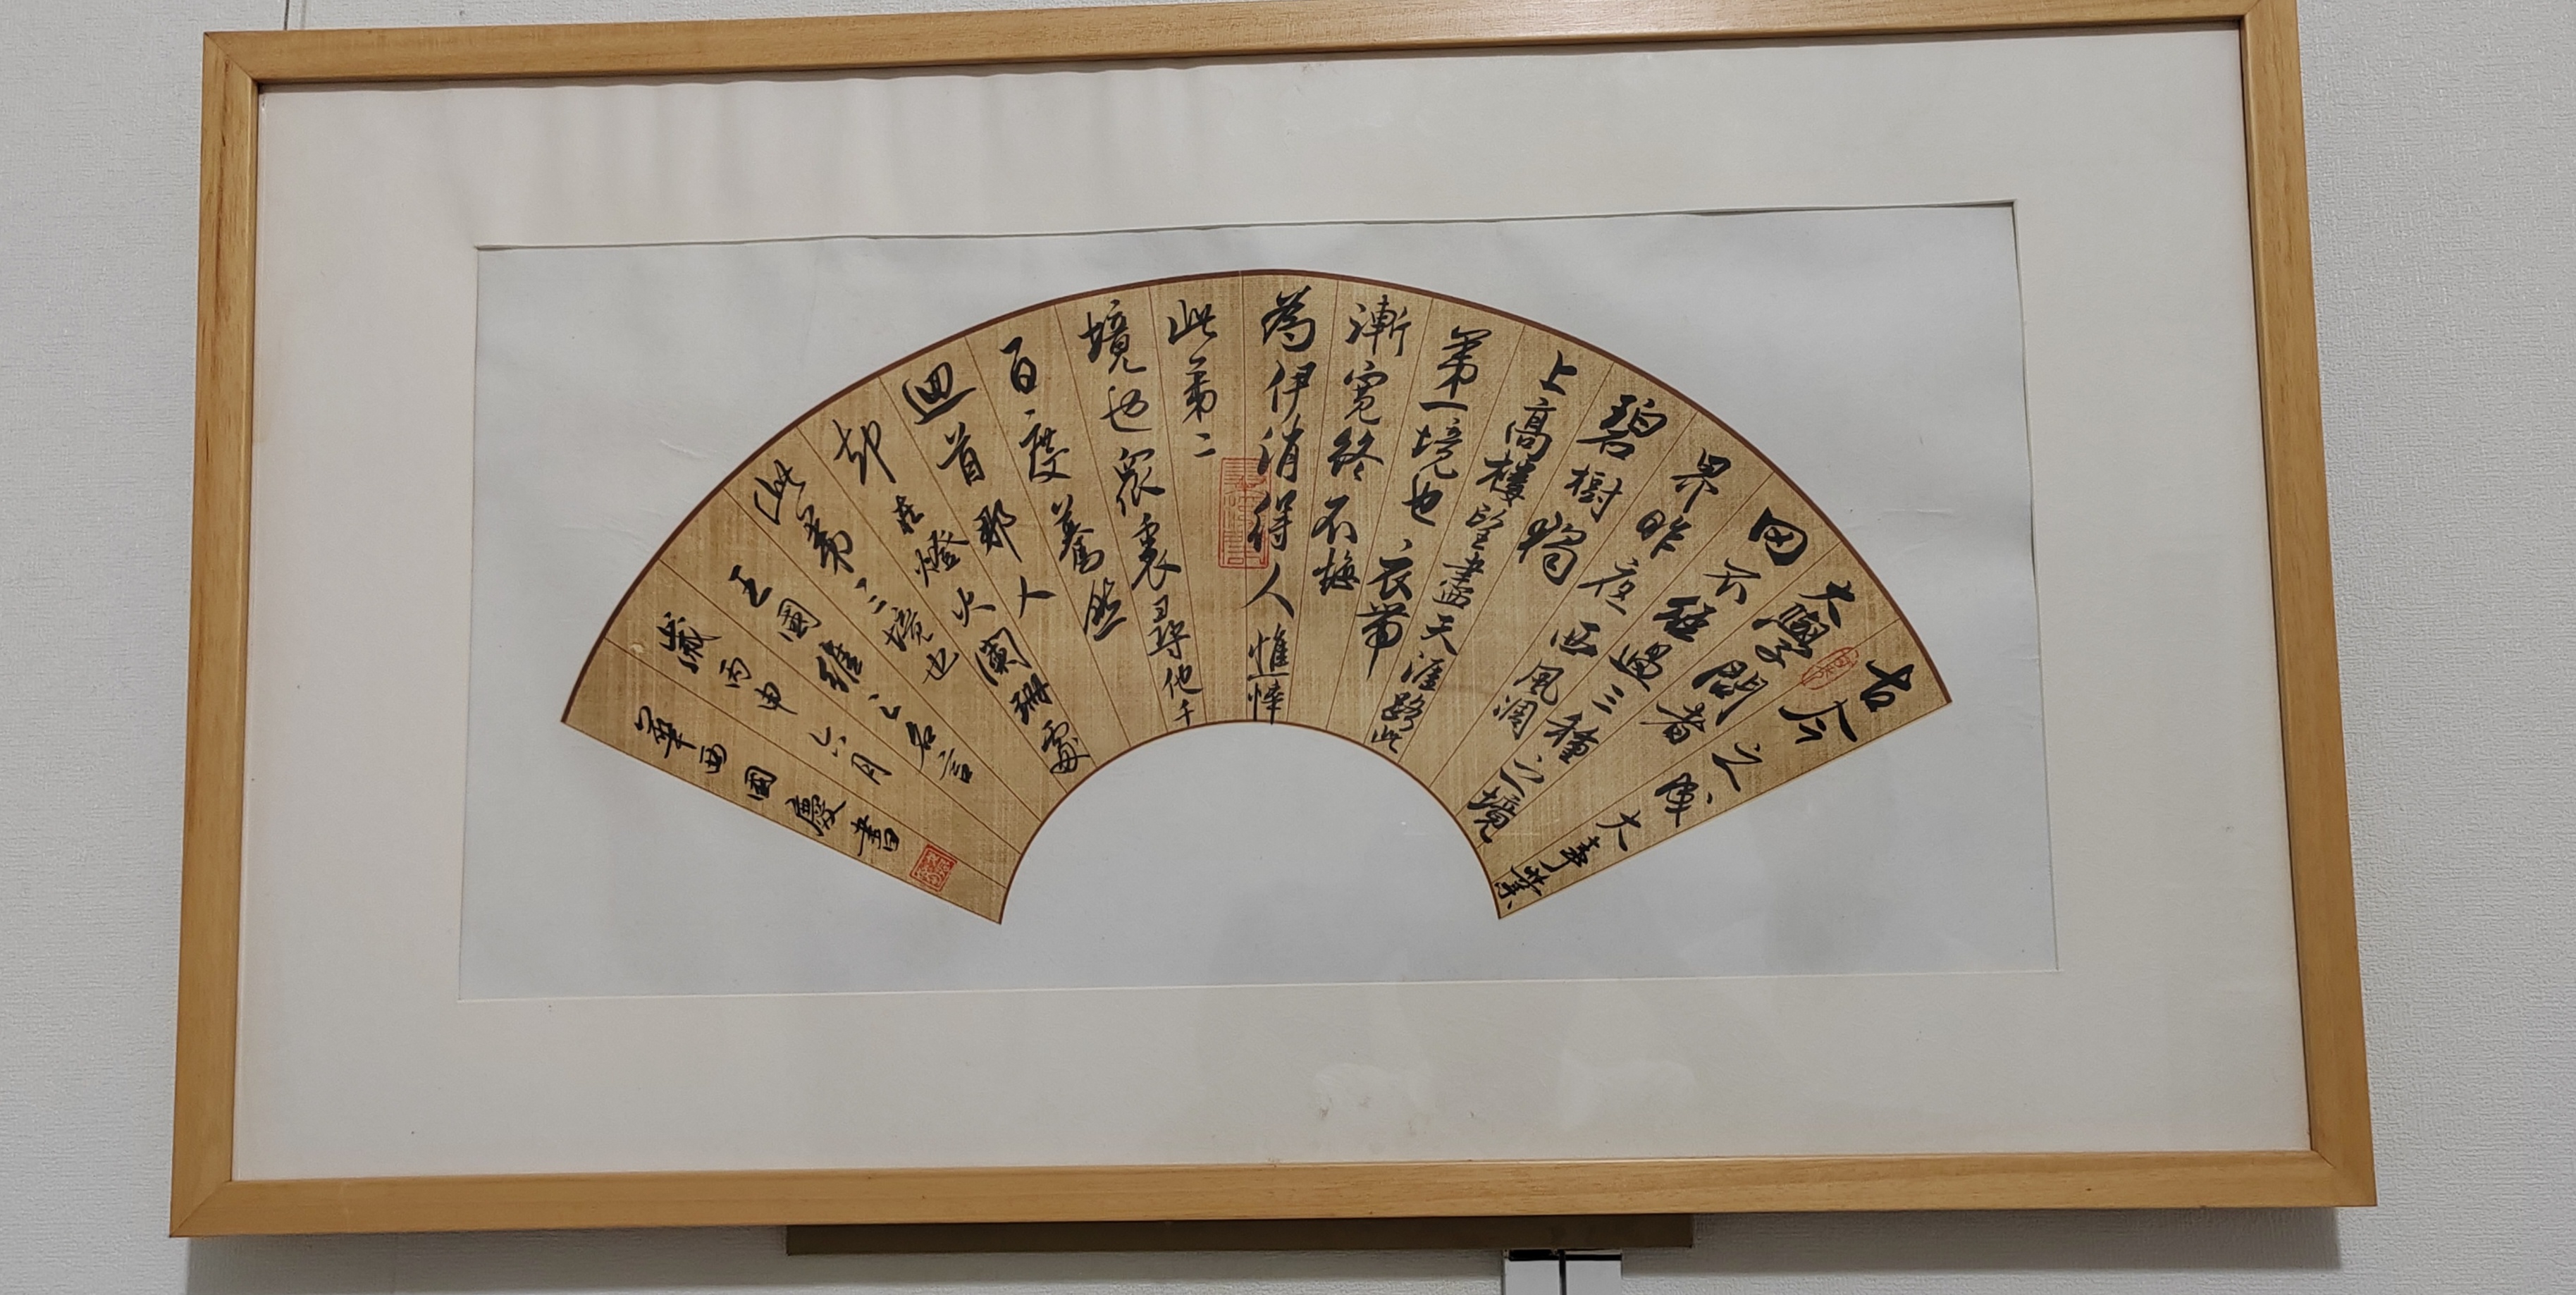 古今之成大事業
大學問者
罔不經過三種之境
界昨夜西風凋
碧樹獨
上高樓望盡天涯路此
第一境也衣帶
漸寬終不悔
為伊消得人憔悴
此第二
境也眾裏尋他千
百度驀然
迴首那人
却在燈火闌珊處
此第三境也
王國維之名言
歲丙申六月
華西國慶書